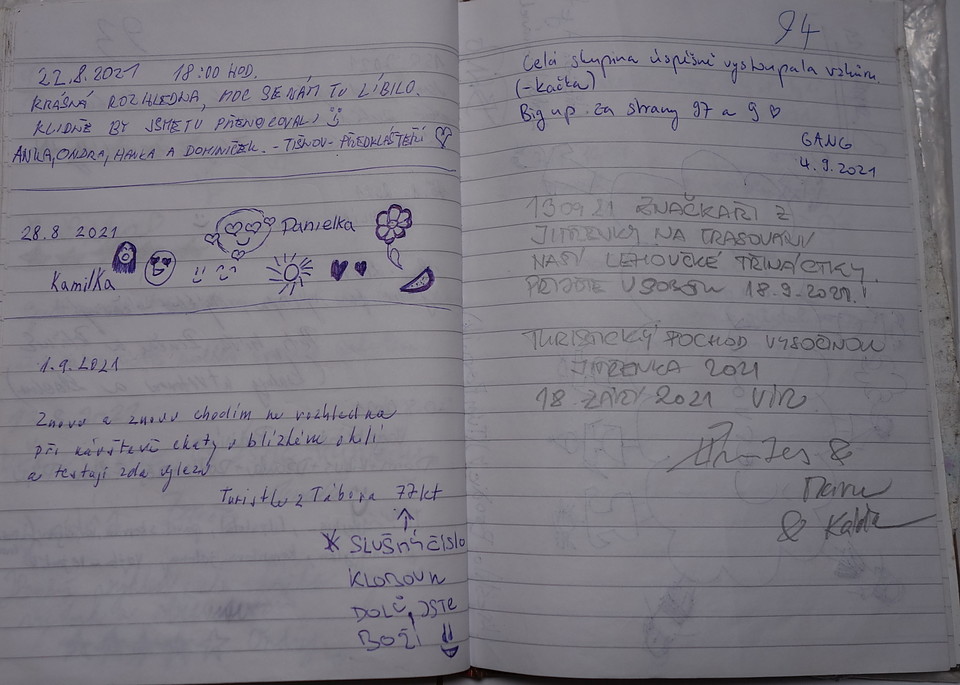 22.8.2021 18:00 HOD.
KRÁSNÁ ROZHLEDNA, MOC SE NÁM TU LÍBILO.
KLIDNĚ BY JSME TU PŘENOCOVALI
ANKA, ONDRA, HANKA A DOMINIČEK. - TIŠNOV - PŘEDKLÁŠTEŘÍ
28.8 2021 Danielka
Kamilka
1.9.2021
Znovu a znovu chodím na rozhlednu
při návštěvě chaty v blízkém okolí
a testuji zda vylezu
Turistka z Tábora 77 let
SLUŠNÉ ČÍSLO
KLOBOUK
DOLŮ, JSTE
BOŽÍ
94
Celá skupina úspěšně vyskoupala vzhůru.
(-Kačka)
Big up za strany 97 a 9
GANG
4.9.2021
130921 ZNAČKAŘI Z
JITŘENKY NA TRASOVÁNÍ
NAŠÍ LEHOUČKÉ TŘINÁCTKY.
PŘIJĎTE V SOBOTU 18.9.2021!
TURISTICKÝ POCHOD VYSOČINOU
JITŘENKA 2021
18. ZÁŘÍ 2021 VÍR
&
& Kalda